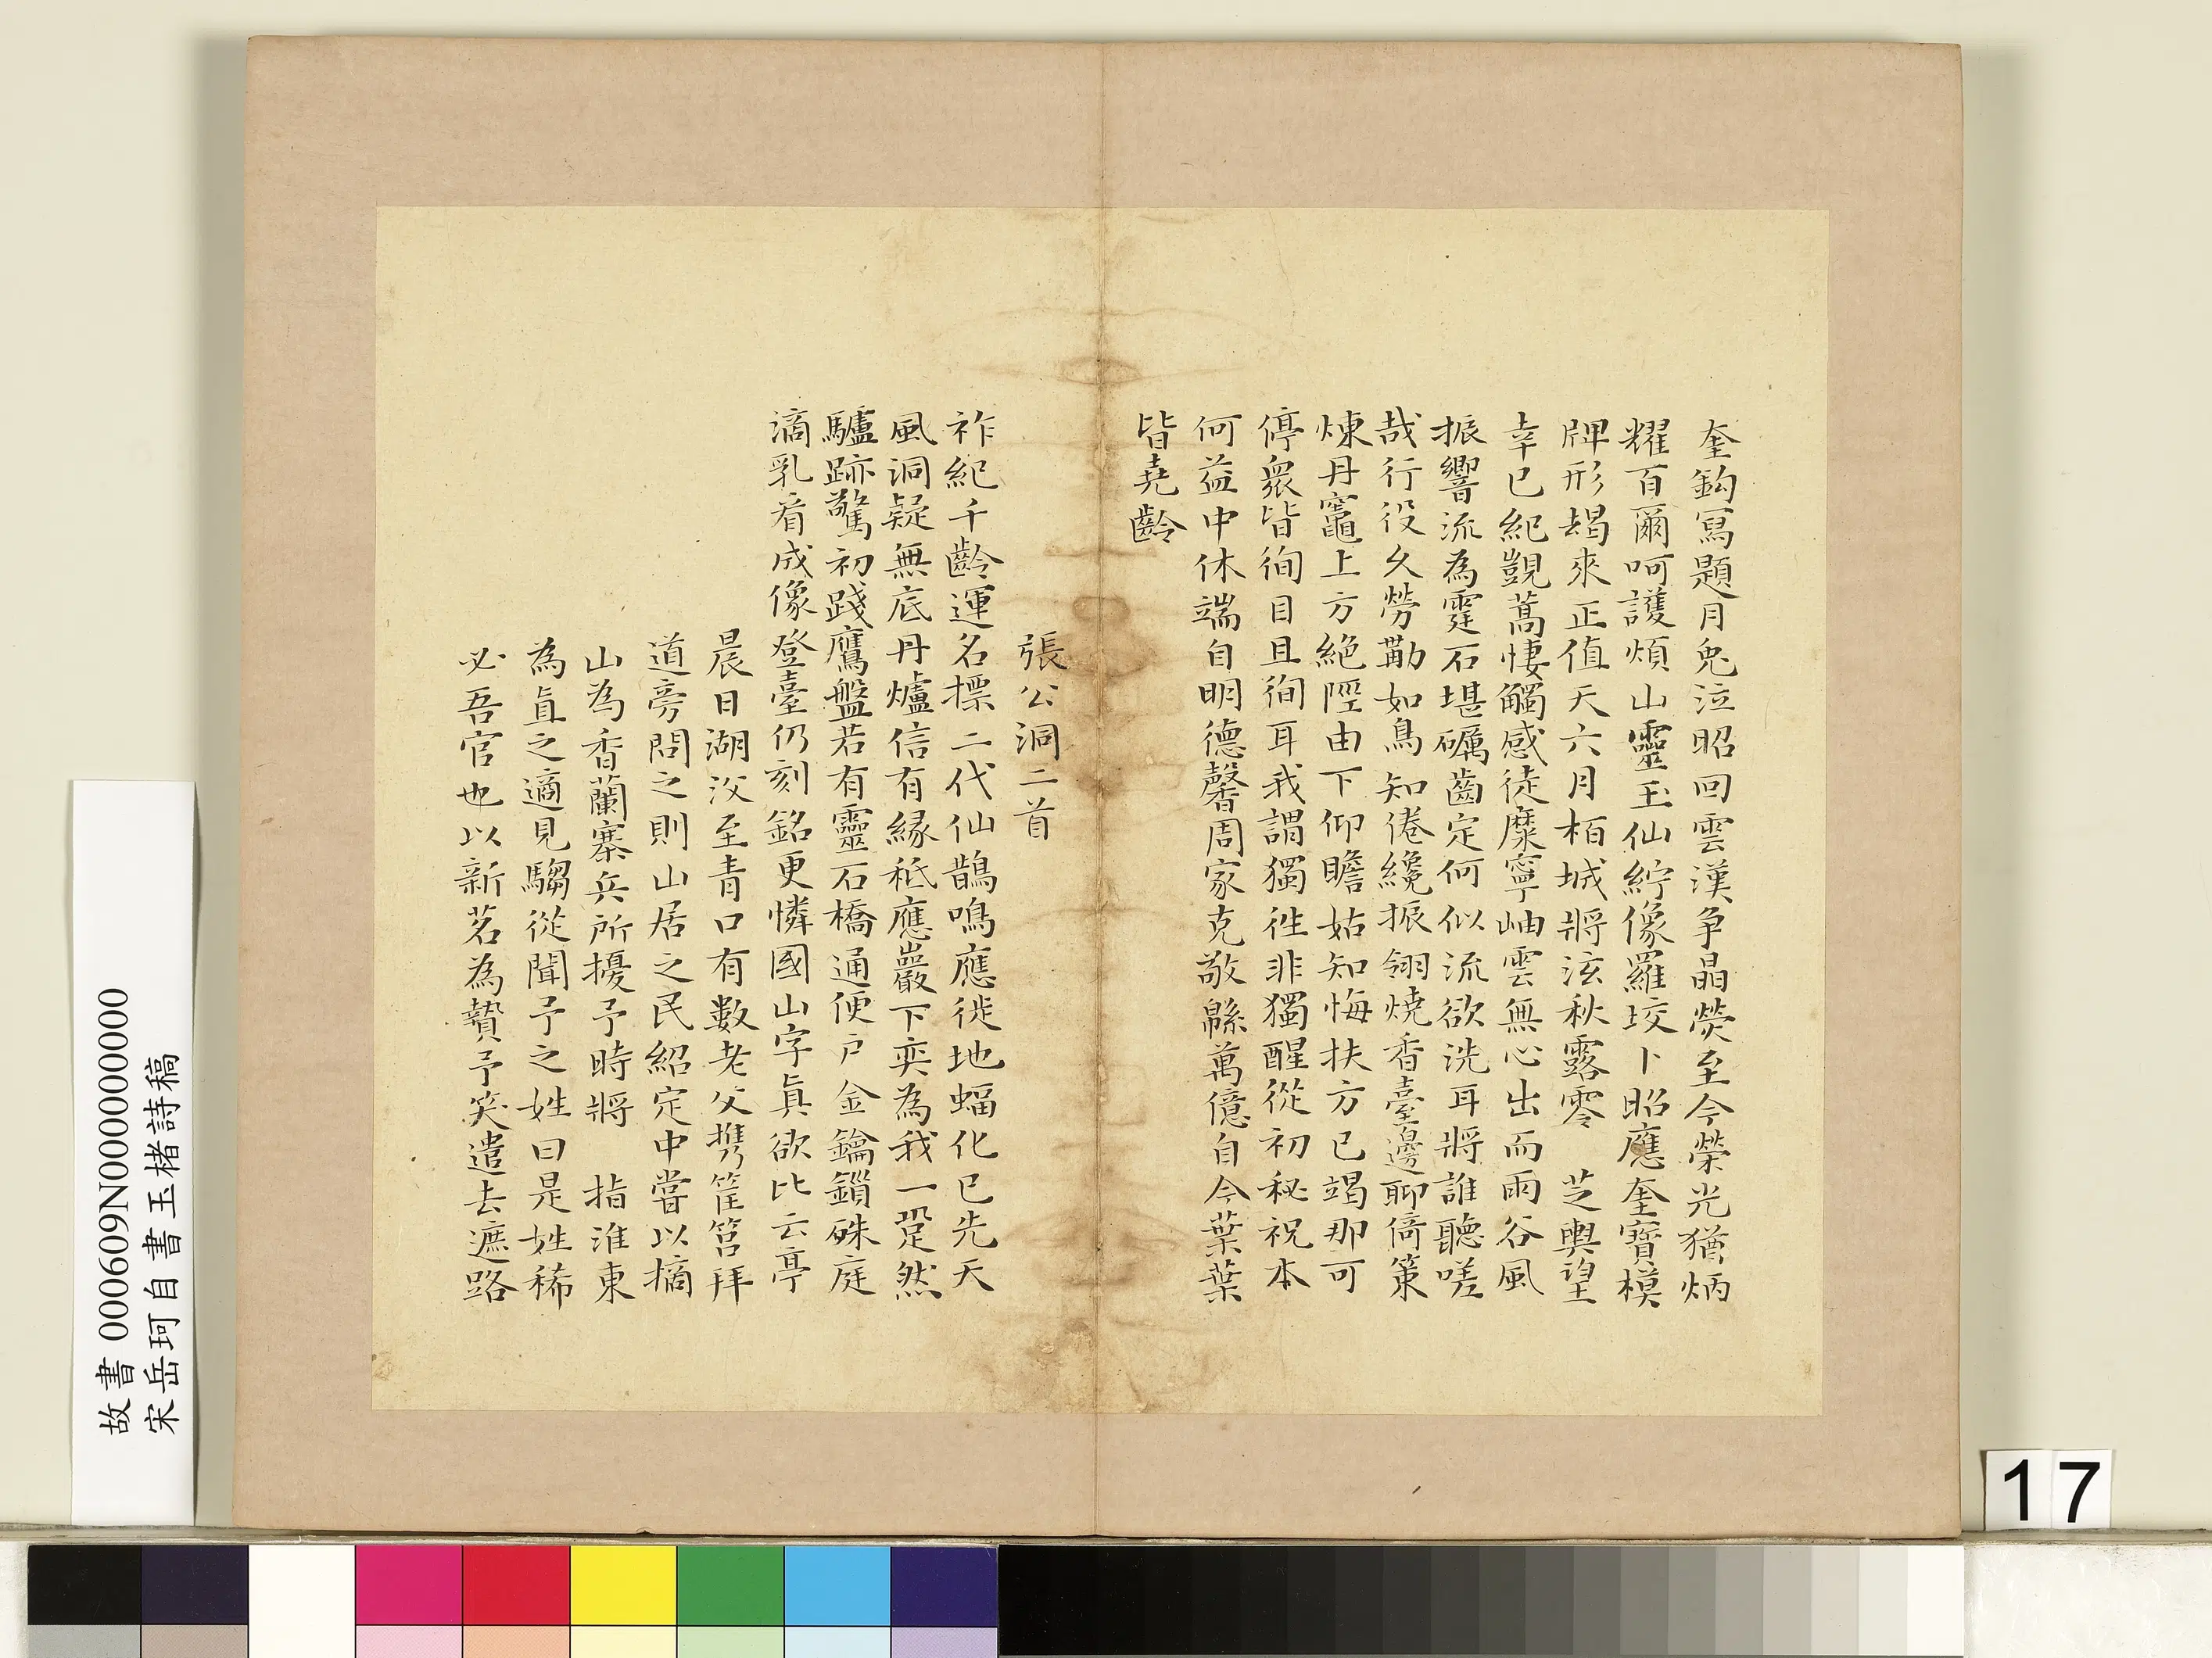 奎鈎冩題月兎泣昭回雲漢爭晶熒至今榮光猶炳
耀百爾呵護煩山靈玉仙紵像羅玟卜昭應奎寶模
牌形朅來正值天六月栢城將泫秋露零 芝輿望
幸已紀覬蒿悽觸感徒麋寧岫雲無心出而雨谷風
振響流為霆石堪礪齒定何似流欲洗耳將誰聽嗟
哉行役久勞勩如鳥知倦纔振翎燒香臺邊聊倚策
煉丹竈上方絕陘由下仰瞻姑知悔扶方已竭那可
停衆皆徇目且徇耳我謂獨徃非獨醒從初秘祝本
何益中休端自明德馨周家克敬緜萬億自今葉葉
皆堯齡
張公洞二首
祚紀千齡運名標二代仙鵲鳴應徙地蝠化已先天
風洞疑無底丹爐信有緣秪應巖下奕為我一跫然
驢跡驚初踐鷹盤若有靈石橋通便戶金鑰鎖硃庭
滴乳看成像登臺仍刻銘更憐國山字眞欲比云亭
晨日湖汊至青口有數老父携筐筥拜
道旁問之則山居之民紹定中嘗以摘
山為香蘭寨兵所擾予時將 指淮東
為直之適見騶從聞予之姓曰是姓稀
必吾官也以新茗為贄予笑遣去遮路
故書 000609N000000000
宋岳珂自書玉楮詩稿
17